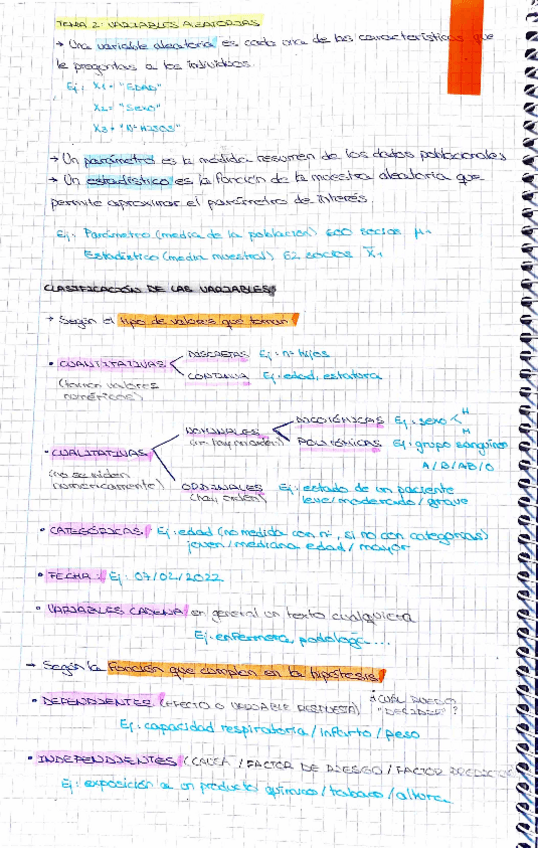 TEMA 2: VARIABLES ALEATORIAS
→ Una variable aleatoria es cada una de las características que
le preguntas a los individuos.
Ej: X1 = "EDAD"
X2 = "SEXO"
X3 = "Nº HIJOS"
→ Un parámetro es la medida resumen de los datos poblacionales
→ Un estadístico es la función de la muestra aleatoria que
permite aproximar el parámetro de interés.
Ej: Parámetro (media de la población) 600 socios μ1
Estadístico (media muestral) 62 socios X̄1
CLASIFICACIÓN DE LAS VARIABLES
→ Según el tipo de valores que toman:
• CUANTITATIVAS
(toman valores
numéricos)
DISCRETAS Ej: nº hijos
CONTINUA Ej: edad, estatura
• CUALITATIVAS
(no se miden
numéricamente)
NOMINALES
(no hay orden)
DICOTÓMICAS Ej: sexo < H
M
POLITÓMICAS Ej: grupo sanguíneo
A/B/AB/O
ORDINALES
(hay orden)
Ej: estado de un paciente
leve/moderado/grave
• CATEGÓRICAS Ej: edad (no medida con nº, si no con categorías)
joven/mediana edad/mayor
• FECHA: Ej: 07/02/2022
• VARIABLES CADENA en general un texto cualquiera
Ej: enfermera, podóloga...
→ Según la función que cumplen en la hipótesis
• DEPENDIENTES (EFECTO O VARIABLE RESPUESTA)
Ej: capacidad respiratoria/infarto/peso
• INDEPENDIENTES (CAUSA / FACTOR DE RIESGO / FACTOR
Ej: exposición a un producto químico/tabaco/altura